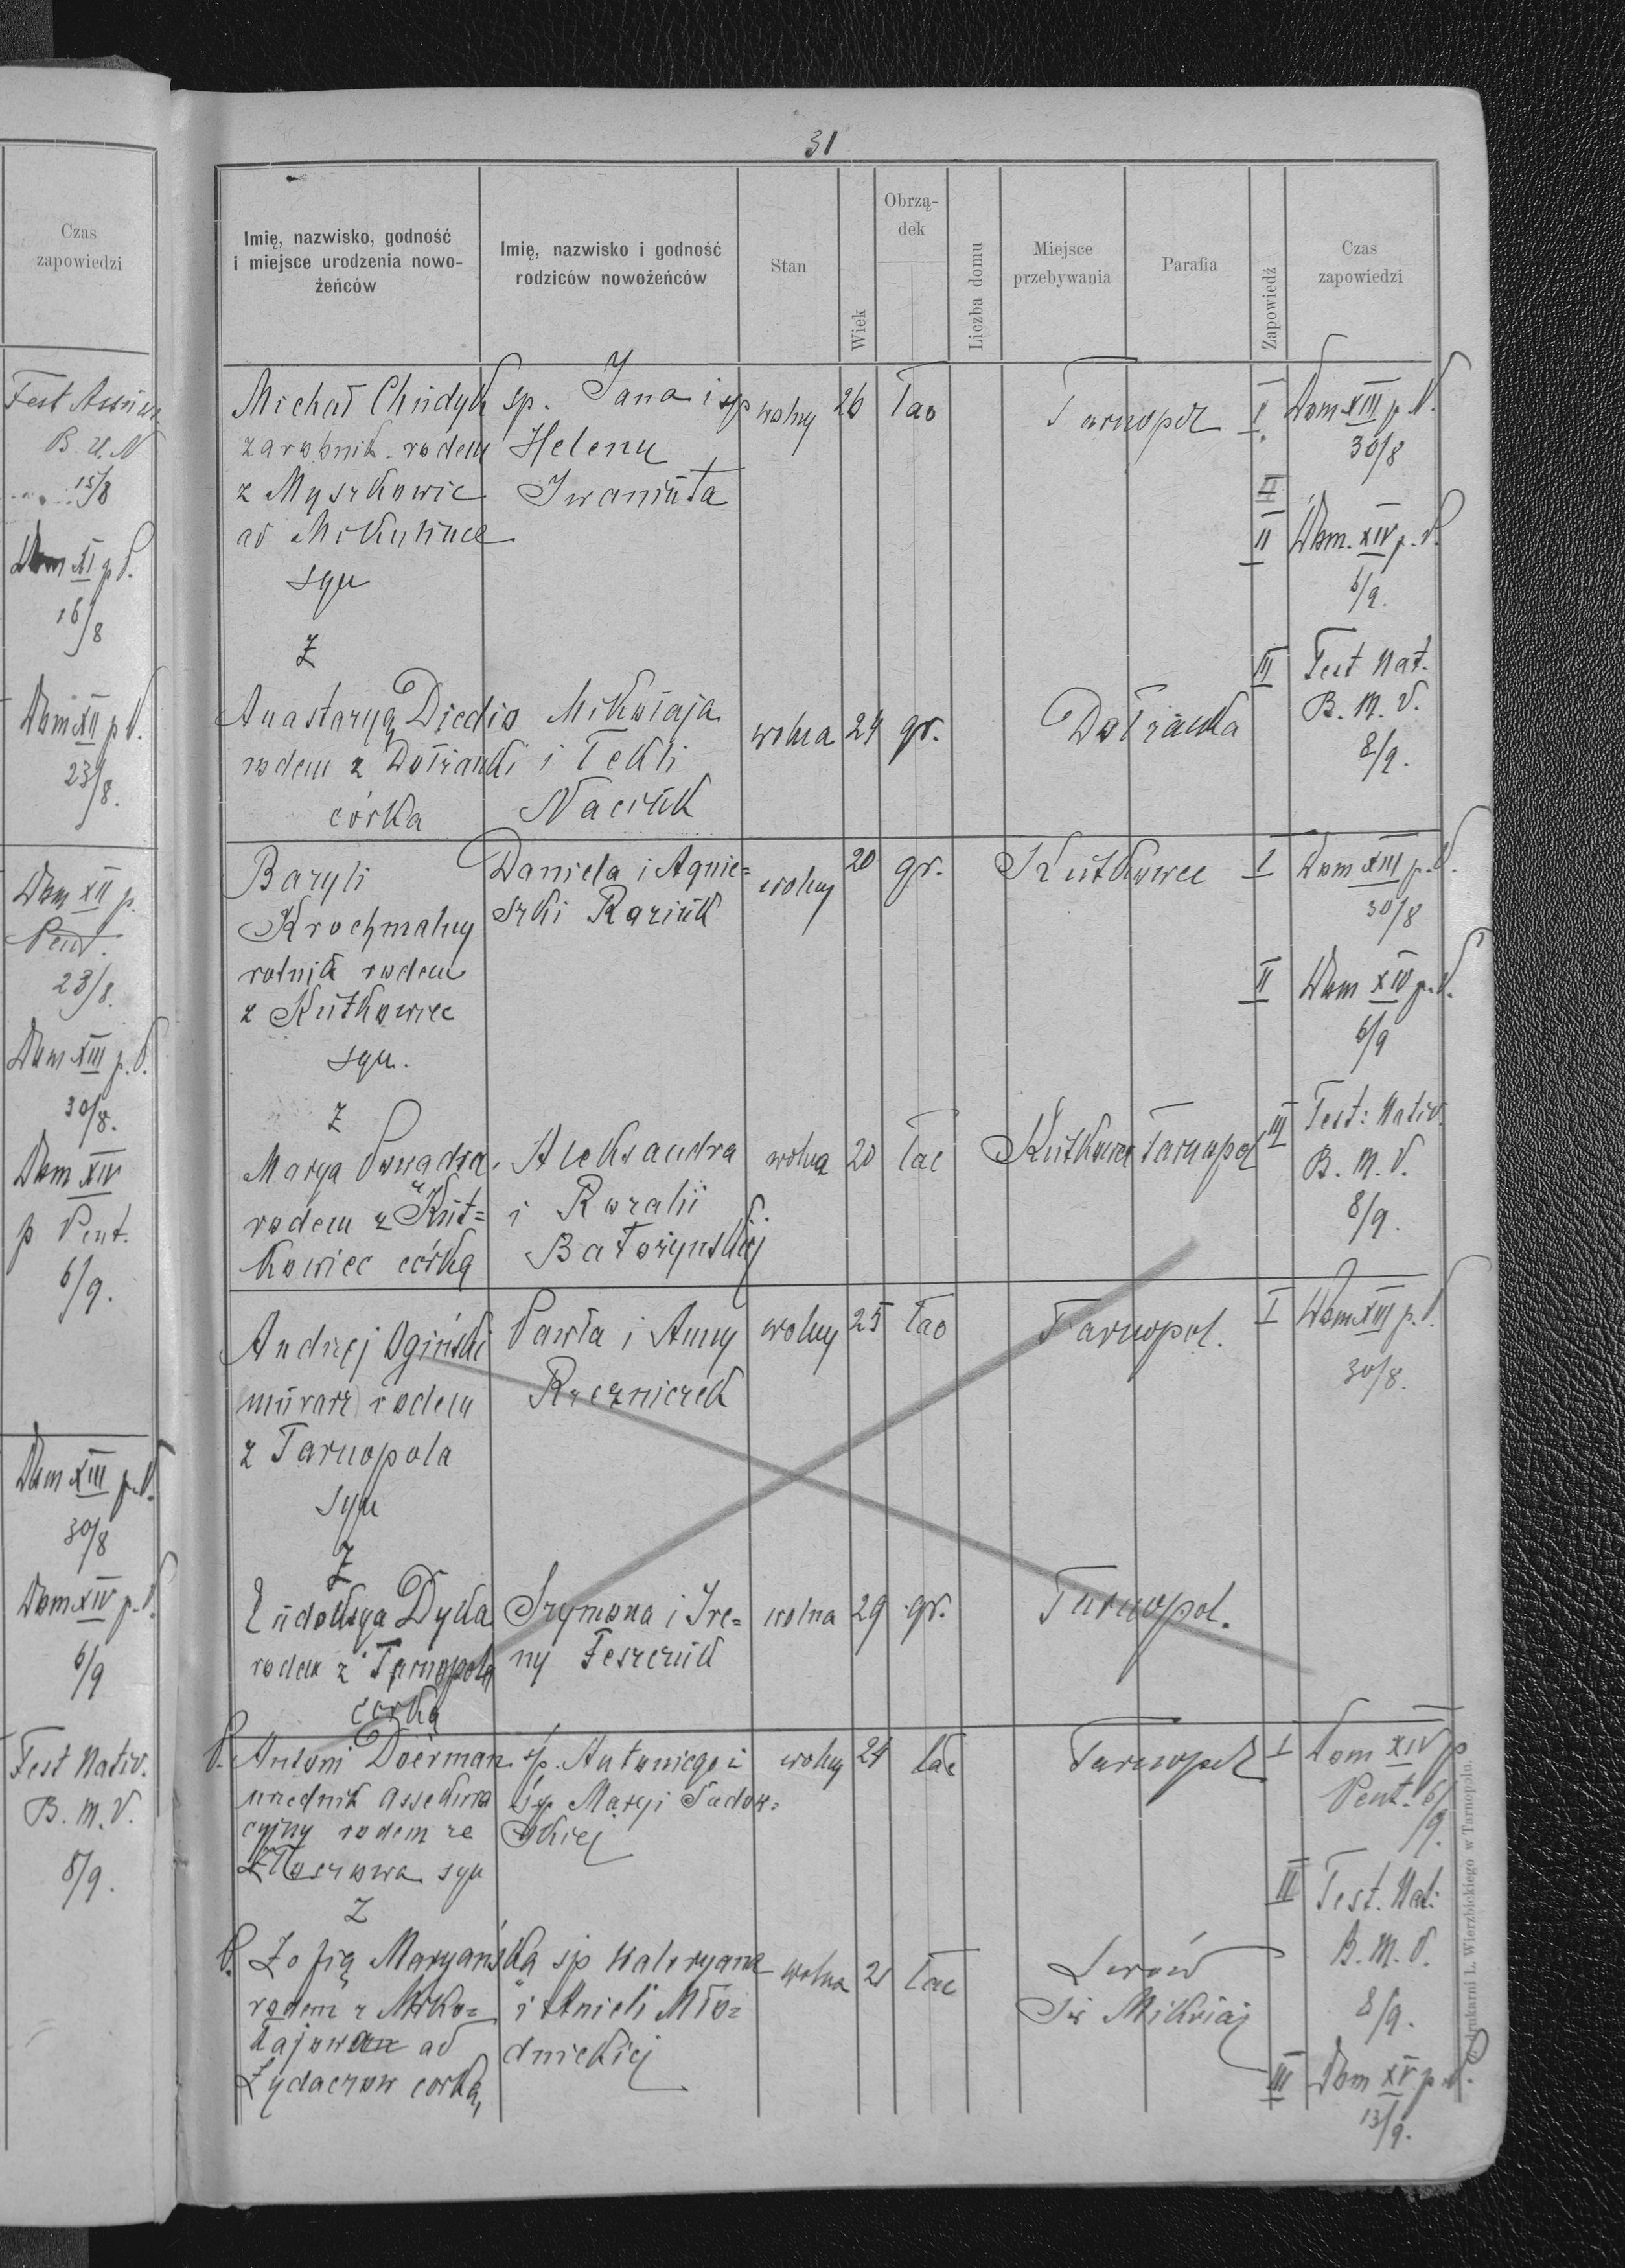 Czas
zapowiedzi
Fest Assum
B. V. M
15/8
Dom XI p P.
16/8
Dom XII p P.
23/8.
Dom XII p.
Pent.
23/8.
Dom XIII p. P.
30/8.
Dom XIV
p Pent.
6/9.
Dom XIII p. P.
30/8
Dom XIV p. P.
6/9
Fest Nativ.
B. M. V.
8/9.
31
Imię, nazwisko, godność
i miejsce urodzenia nowo-
żeńców
Imię, nazwisko i godność
rodziców nowożeńców
Stan
Wiek
Obrzą-
dek
Liczba domu
Miejsce
przebywania
Parafia
Zapowiedź
Czas
zapowiedzi
Michał Chudyk sp. Jana i sp wolny 26 łac Tarnopol I. Dom XIII p P.
zarobnik rodem Heleny 30/8
z Myszkowic Iwaniuta
ad Mikulince II Dom. XIV p. P.
syn 6/9.
Z
III Fest Nat.
B. M. V.
8/9.
Anastazyą Diedio Mikołaja wolna 24 gr. Dołżanka
rodem z Dołżanki i Tekli
córka Naciuk
Bazyli Daniela i Agnie= wolny 20 gr. Kutkowce I Dom XIII p. P.
Krochmalny szki Raziuk 30/8
rolnik rodem
z Kutkowiec II Dom XIV p. P.
syn. 6/9
Z
Marya Aleksandra wolna 20 łac Kutkowce Tarnopol III Fest: Nativ.
rodem z Kut= i Rozalii B. M. V.
kowiec córką Bałożyńskiej 8/9.
Andrzej Ogiński Pawła i Anny wolny 25 łac Tarnopol. I Dom XIII p. P.
murarz rodem Rzeźniczek 30/8.
z Tarnopola
syn
Z
Ludwiką Dyka Szymona i Ire= wolna 29 gr. Tarnopol.
rodem z Tarnopola ny Teszczuk
corką
P. Antoni Doerman śp. Antoniego i wolny 24 łac Tarnopol I Dom XIV p
urzednik assekura śp Maryi Sadow= Pent. 6/9.
cyjny rodem ze skiej
Złoczowa syn II Fest. Nat:
Z B. M. V.
8/9.
P. Zofią Maryańską sp Waleryana wolna 21 łac Lwów
rodem z Miko= i Anieli Mło= Św Mikołaj
łajowa ad dnickiej III Dom XV p. P.
Żydaczow corką, 13/9.
Z drukarni L. Wierzbickiego w Tarnopolu.